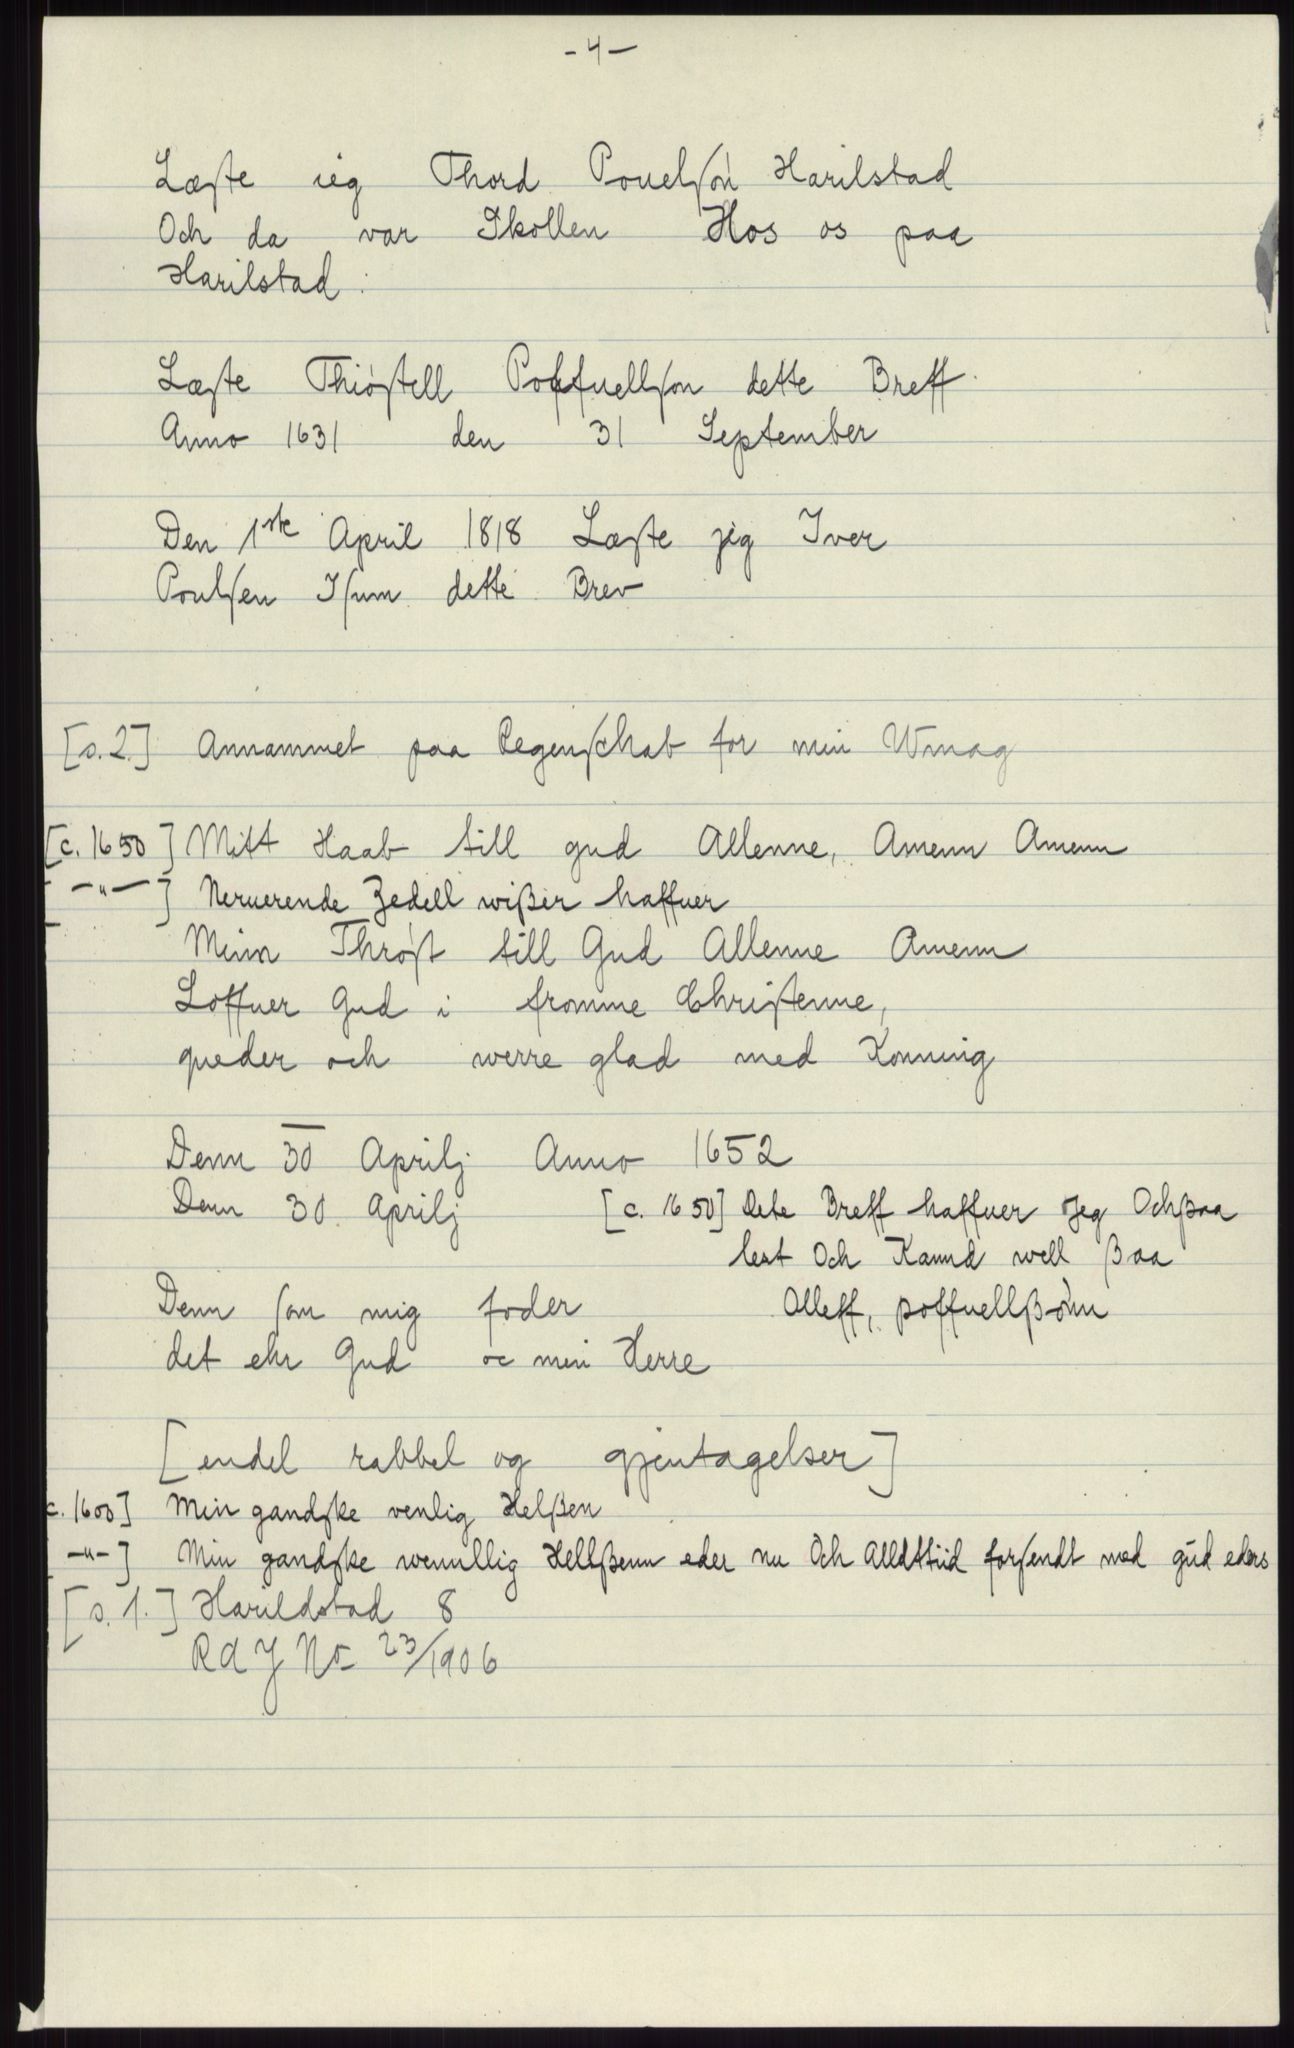 - 4 -
Læſte ieg Thord Pouelſøn Harilstad
Och da var Skollen Hos os paa
Harilstad.
Læſte Thiøſtell Poffuellſon dette Breff.
Anno 1631 den 31 September
Den 1ste April 1818 Læſte jeg Iver
Poulſen Iſum dette Brev
[s. 2.] Annammet paa Regenſchab for min Wmag
[c. 1650] Mitt Haab till gud Allenne, Amenn Amenn
[ —"— ] Neruerende Zedell wißer haffuer
Minn Thrøſt till Gud Allenne Amenn
Loffuer Gud i fromme Chriſtenne,
queder och werre glad med Konning
Denn 30 Aprilj Anno 1652
Denn 30 Aprilj
[c. 1650] Dete Breff haffuer Jeg Ochßaa
lest Och Kannd well ßaa
Olleff, poffuellßønn
Denn ſom mig foder
det ehr Gud oc min Herre
[endel rabbel og gjentagelser]
c. 1600] Min gandſke venlig Helßen
[ —"— ] Min gandſke wennllig Hellßenn eder nu Och Alldttiid forſendt med gud eders
[s. 1.] Harildstad 8
RA J No 23/1906